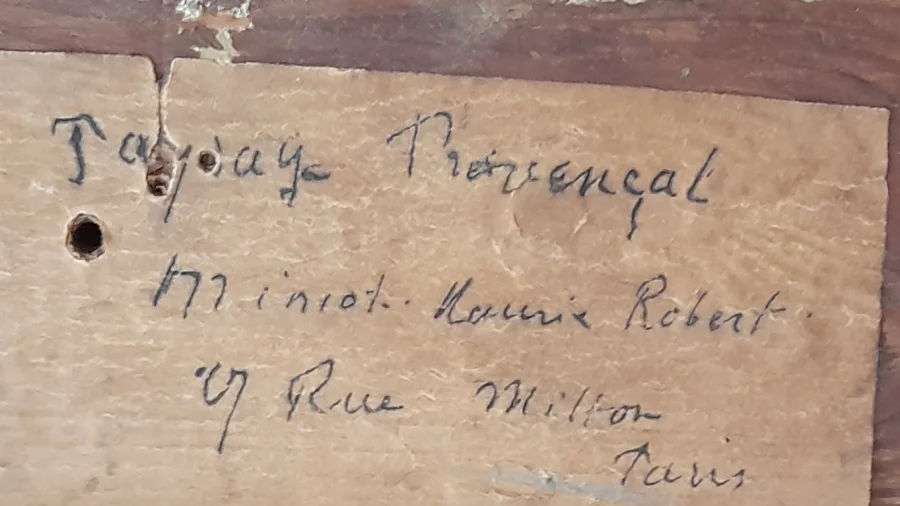 Paysage Provençal
Miniot. Maurice Robert.
Rue Milton
Paris